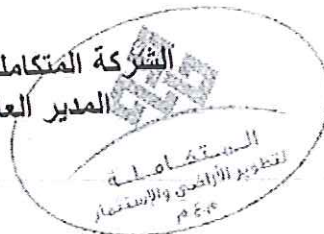 الشركة المتكاملة
المدير العا
المتكاملة
لتطوير الأراضي والإستثمار
م.ع.م